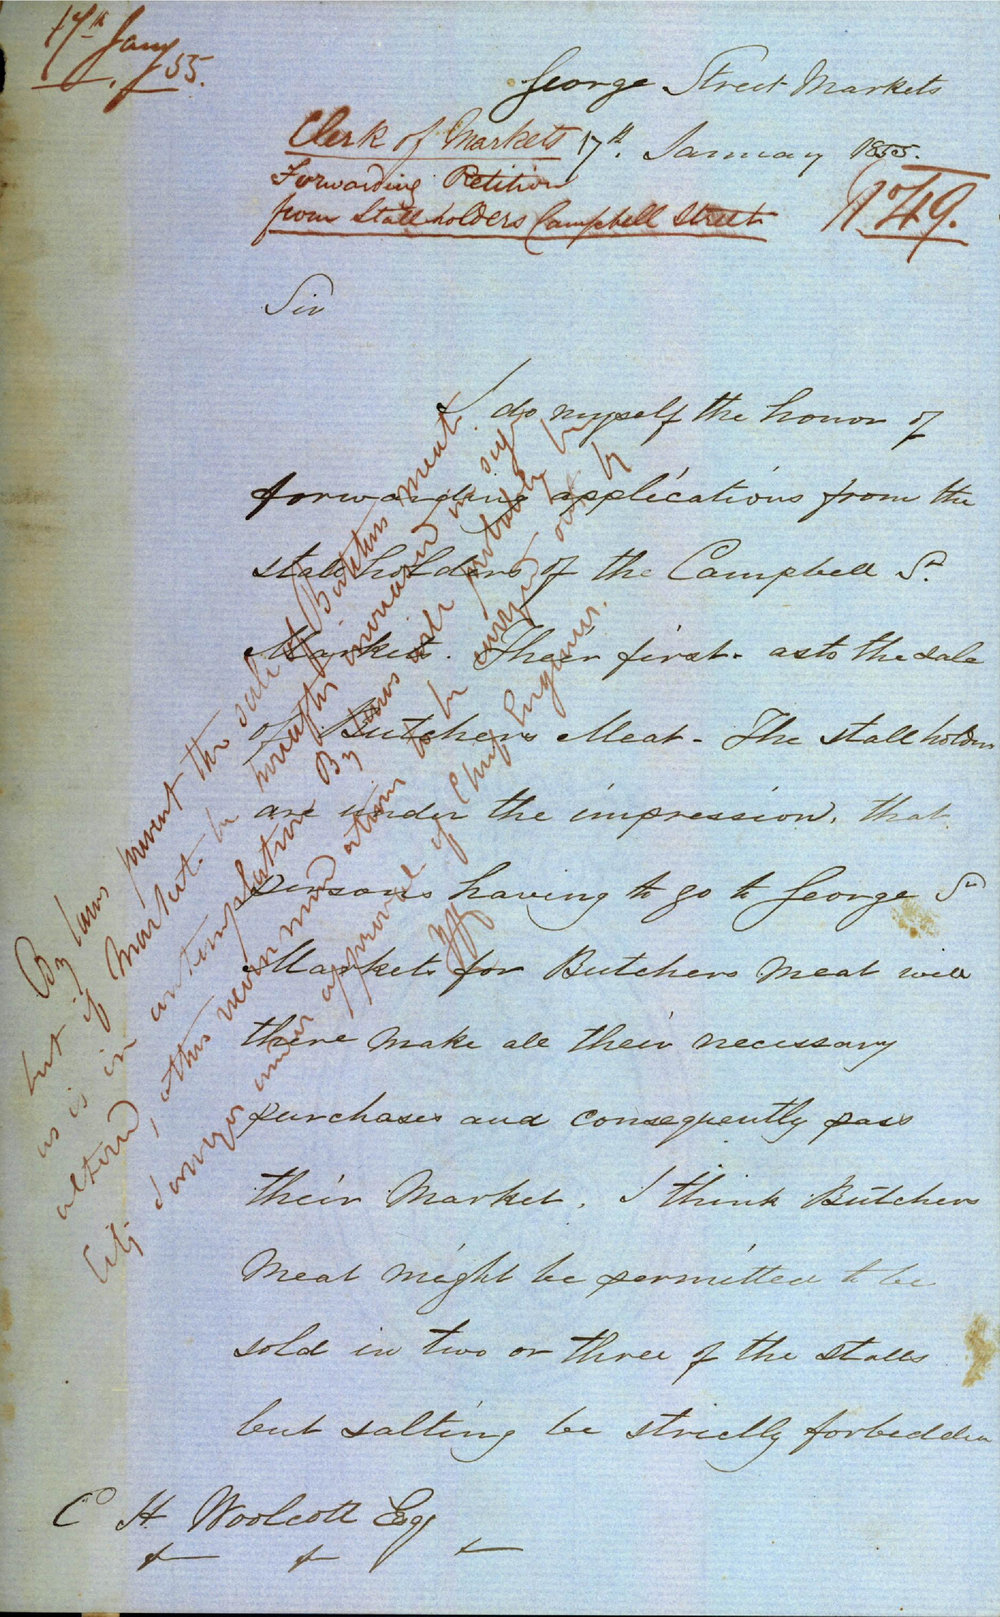 17th Jany 55.
George Street Markets
Clerk of Markets
17th. January 1855.
Forwarding Petition
from Stallholders Campbell Street
No 49.
Sir
I do myself the honor of
forwarding applications from the
stall holders of the Campbell St.
Markets. Their first - as to the sale
of Butchers Meat - The stall holders
are under the impression, that
persons having to go to George St
Markets for Butchers Meat will
there make all their necessary
purchases and consequently pass
their Market. I think Butchers
Meat might be permitted to be
sold in two or three of the stalls
but salting be strictly forbidden
C H Woolcott Esq
By laws prevent the sale of Butchers meat
but if Market be hereafter increased in size
as is in contemplation By laws will probably be
altered, this recommendation to be carried out by
City Surveyor under approval of Chief Engineer.